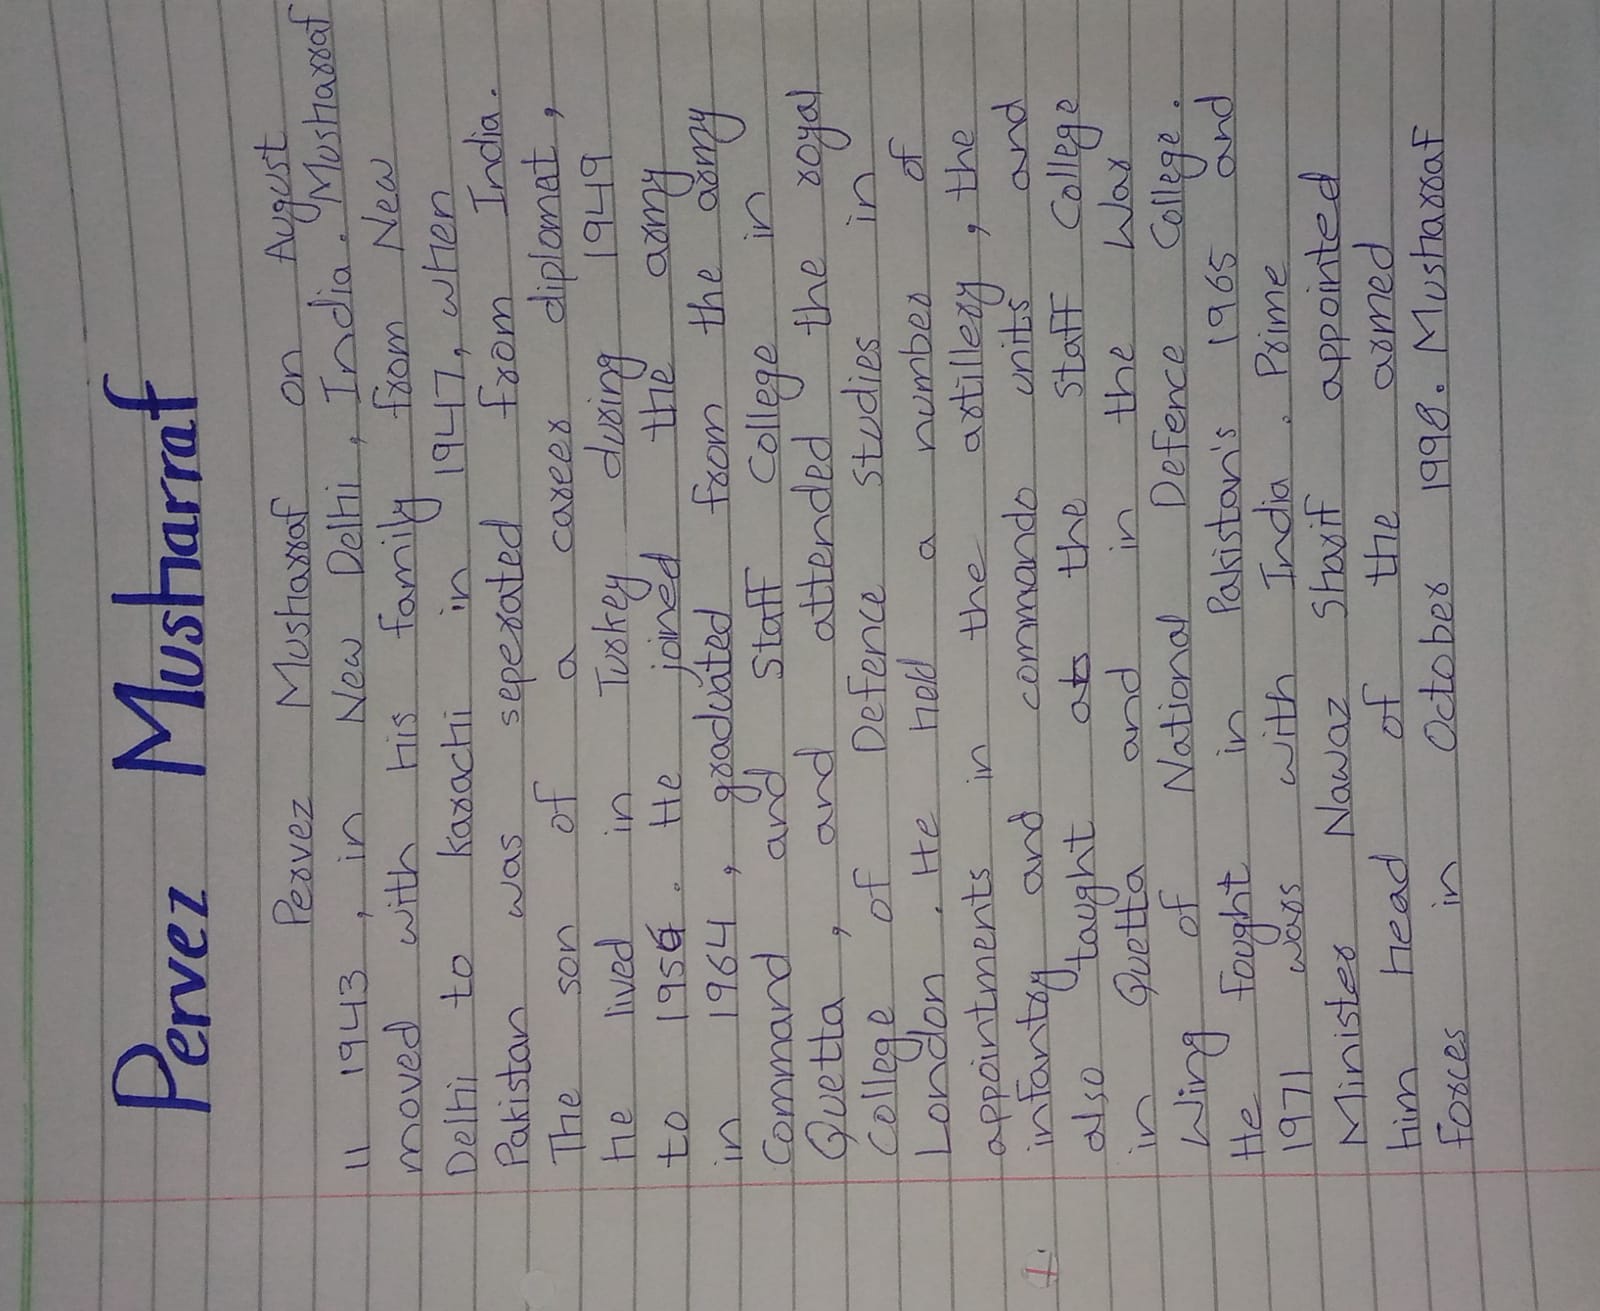 Pervez Musharraf
Pervez Musharraf on August
11 1943, in New Delhi, India. Musharraf
moved with his family from New
Delhi to karachi in 1947, when
Pakistan was seperated from India.
The son of a career diplomat,
he lived in Turkey during 1949
to 1956. He joined the army
in 1964, graduated from the army
Command and Staff College in
Quetta, and attended the royal
College of Defence studies in
London. He held a number of
appointments in the artillery, the
infantry and commando units and
also taught at the staff College
in Quetta and in the War
Wing of National Defence College.
He fought in Pakistan's 1965 and
1971 wars with India. Prime
Minister Nawaz Sharif appointed
him head of the armed
forces in October 1998. Musharraf
1.